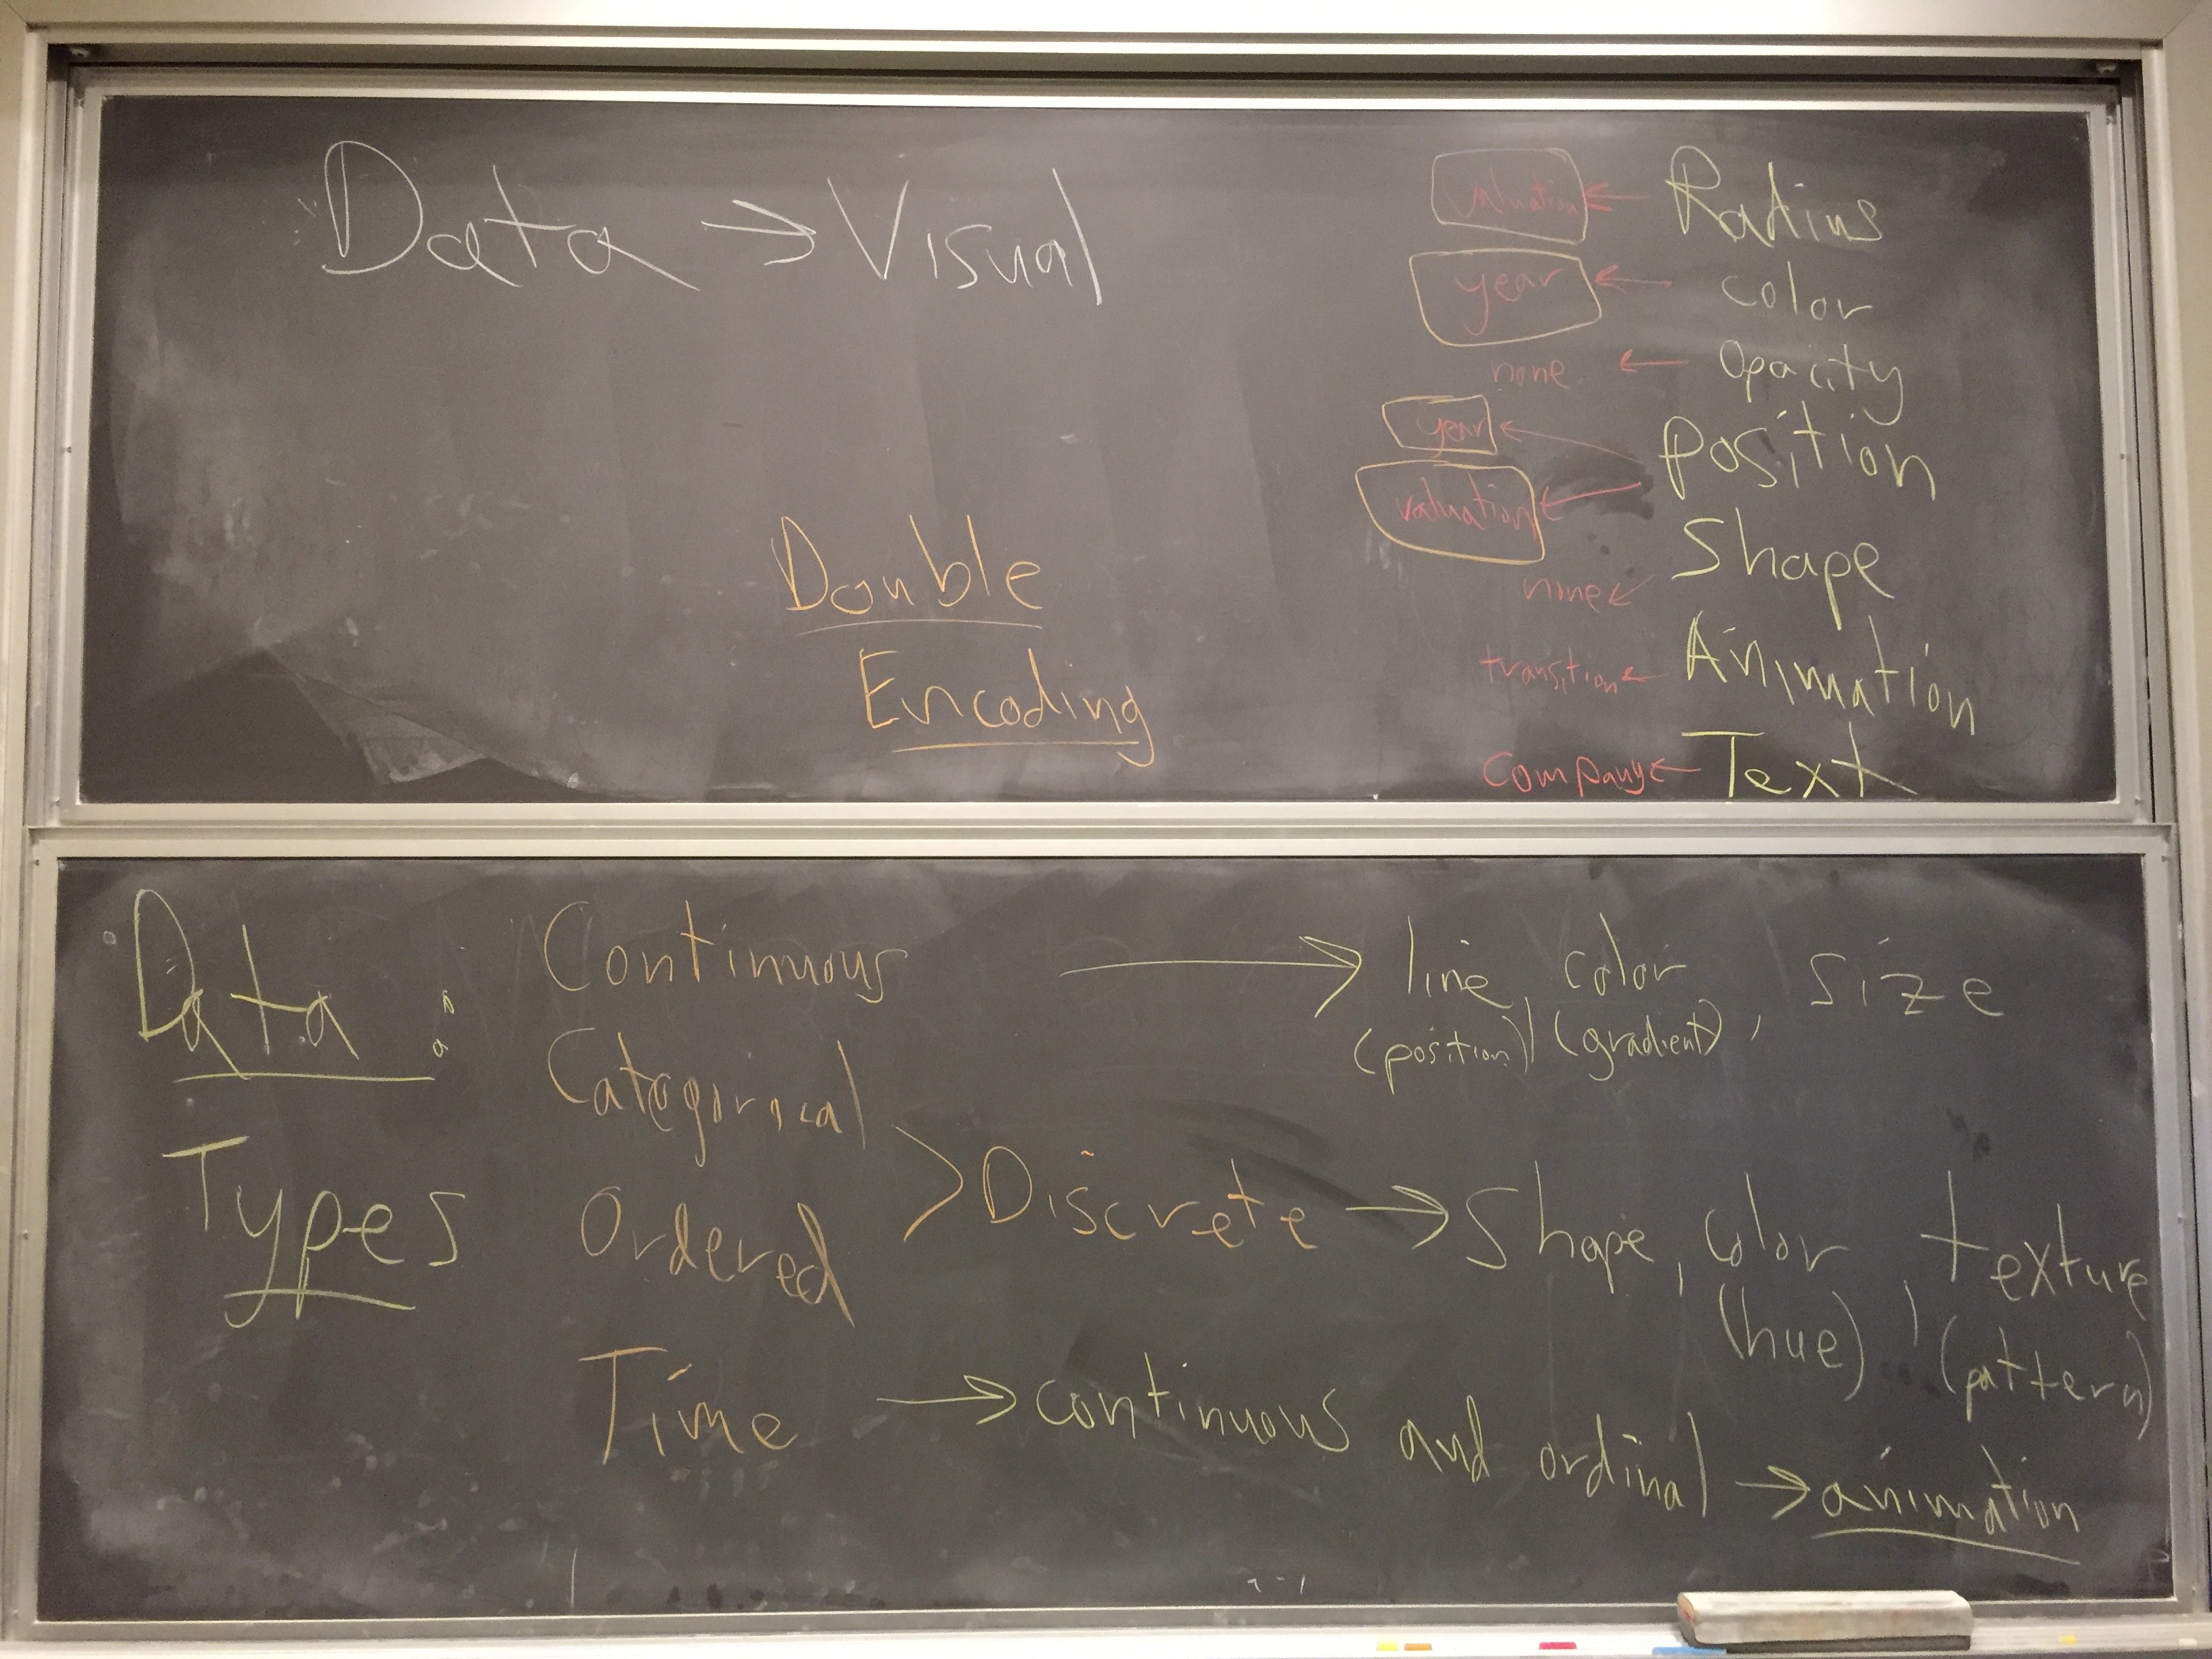 Data → Visual
valuation ← Radius
year ← color
none ← opacity
year ← position
valuation ←
none ← Shape
transition ← Animation
Company ← Text
Double
Encoding
Data: Continuous → line, color, size
(position) (gradient)
Categorical
Types Ordered > Discrete → Shape, color, texture
(hue) (pattern)
Time → continuous and ordinal → animation